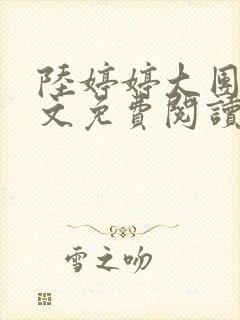 陸婷婷大圍
文免費閱讀
雪之吻